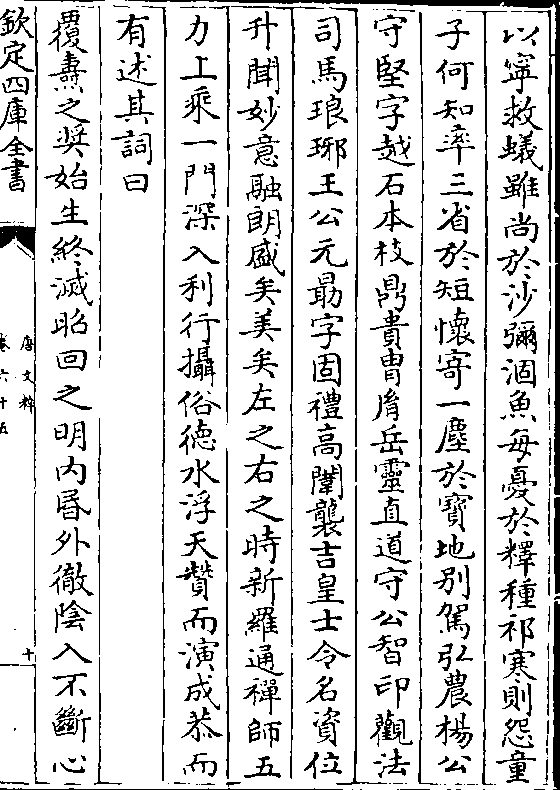 以寧救蟻雖尚於沙彌涸魚每憂於釋種祁寒則怨童
子何知率三省於短懷寄一塵於寶地别駕弘農楊公
守堅字越石本枝鼎貴胄胤岳靈直道守公智印觀法
司馬琅琊王公元勗字固禮高闈襲吉皇士令名資位
升聞妙意融朗盛矣美矣左之右之時新羅通禪師五
力上乘一門深入利行攝俗德水浮天贊而演成恭而
有述其詞曰
覆燾之奬始生終滅昭回之明内昬外徹陰入不斷心
欽定四庫全書
唐文粹
卷六十五
十